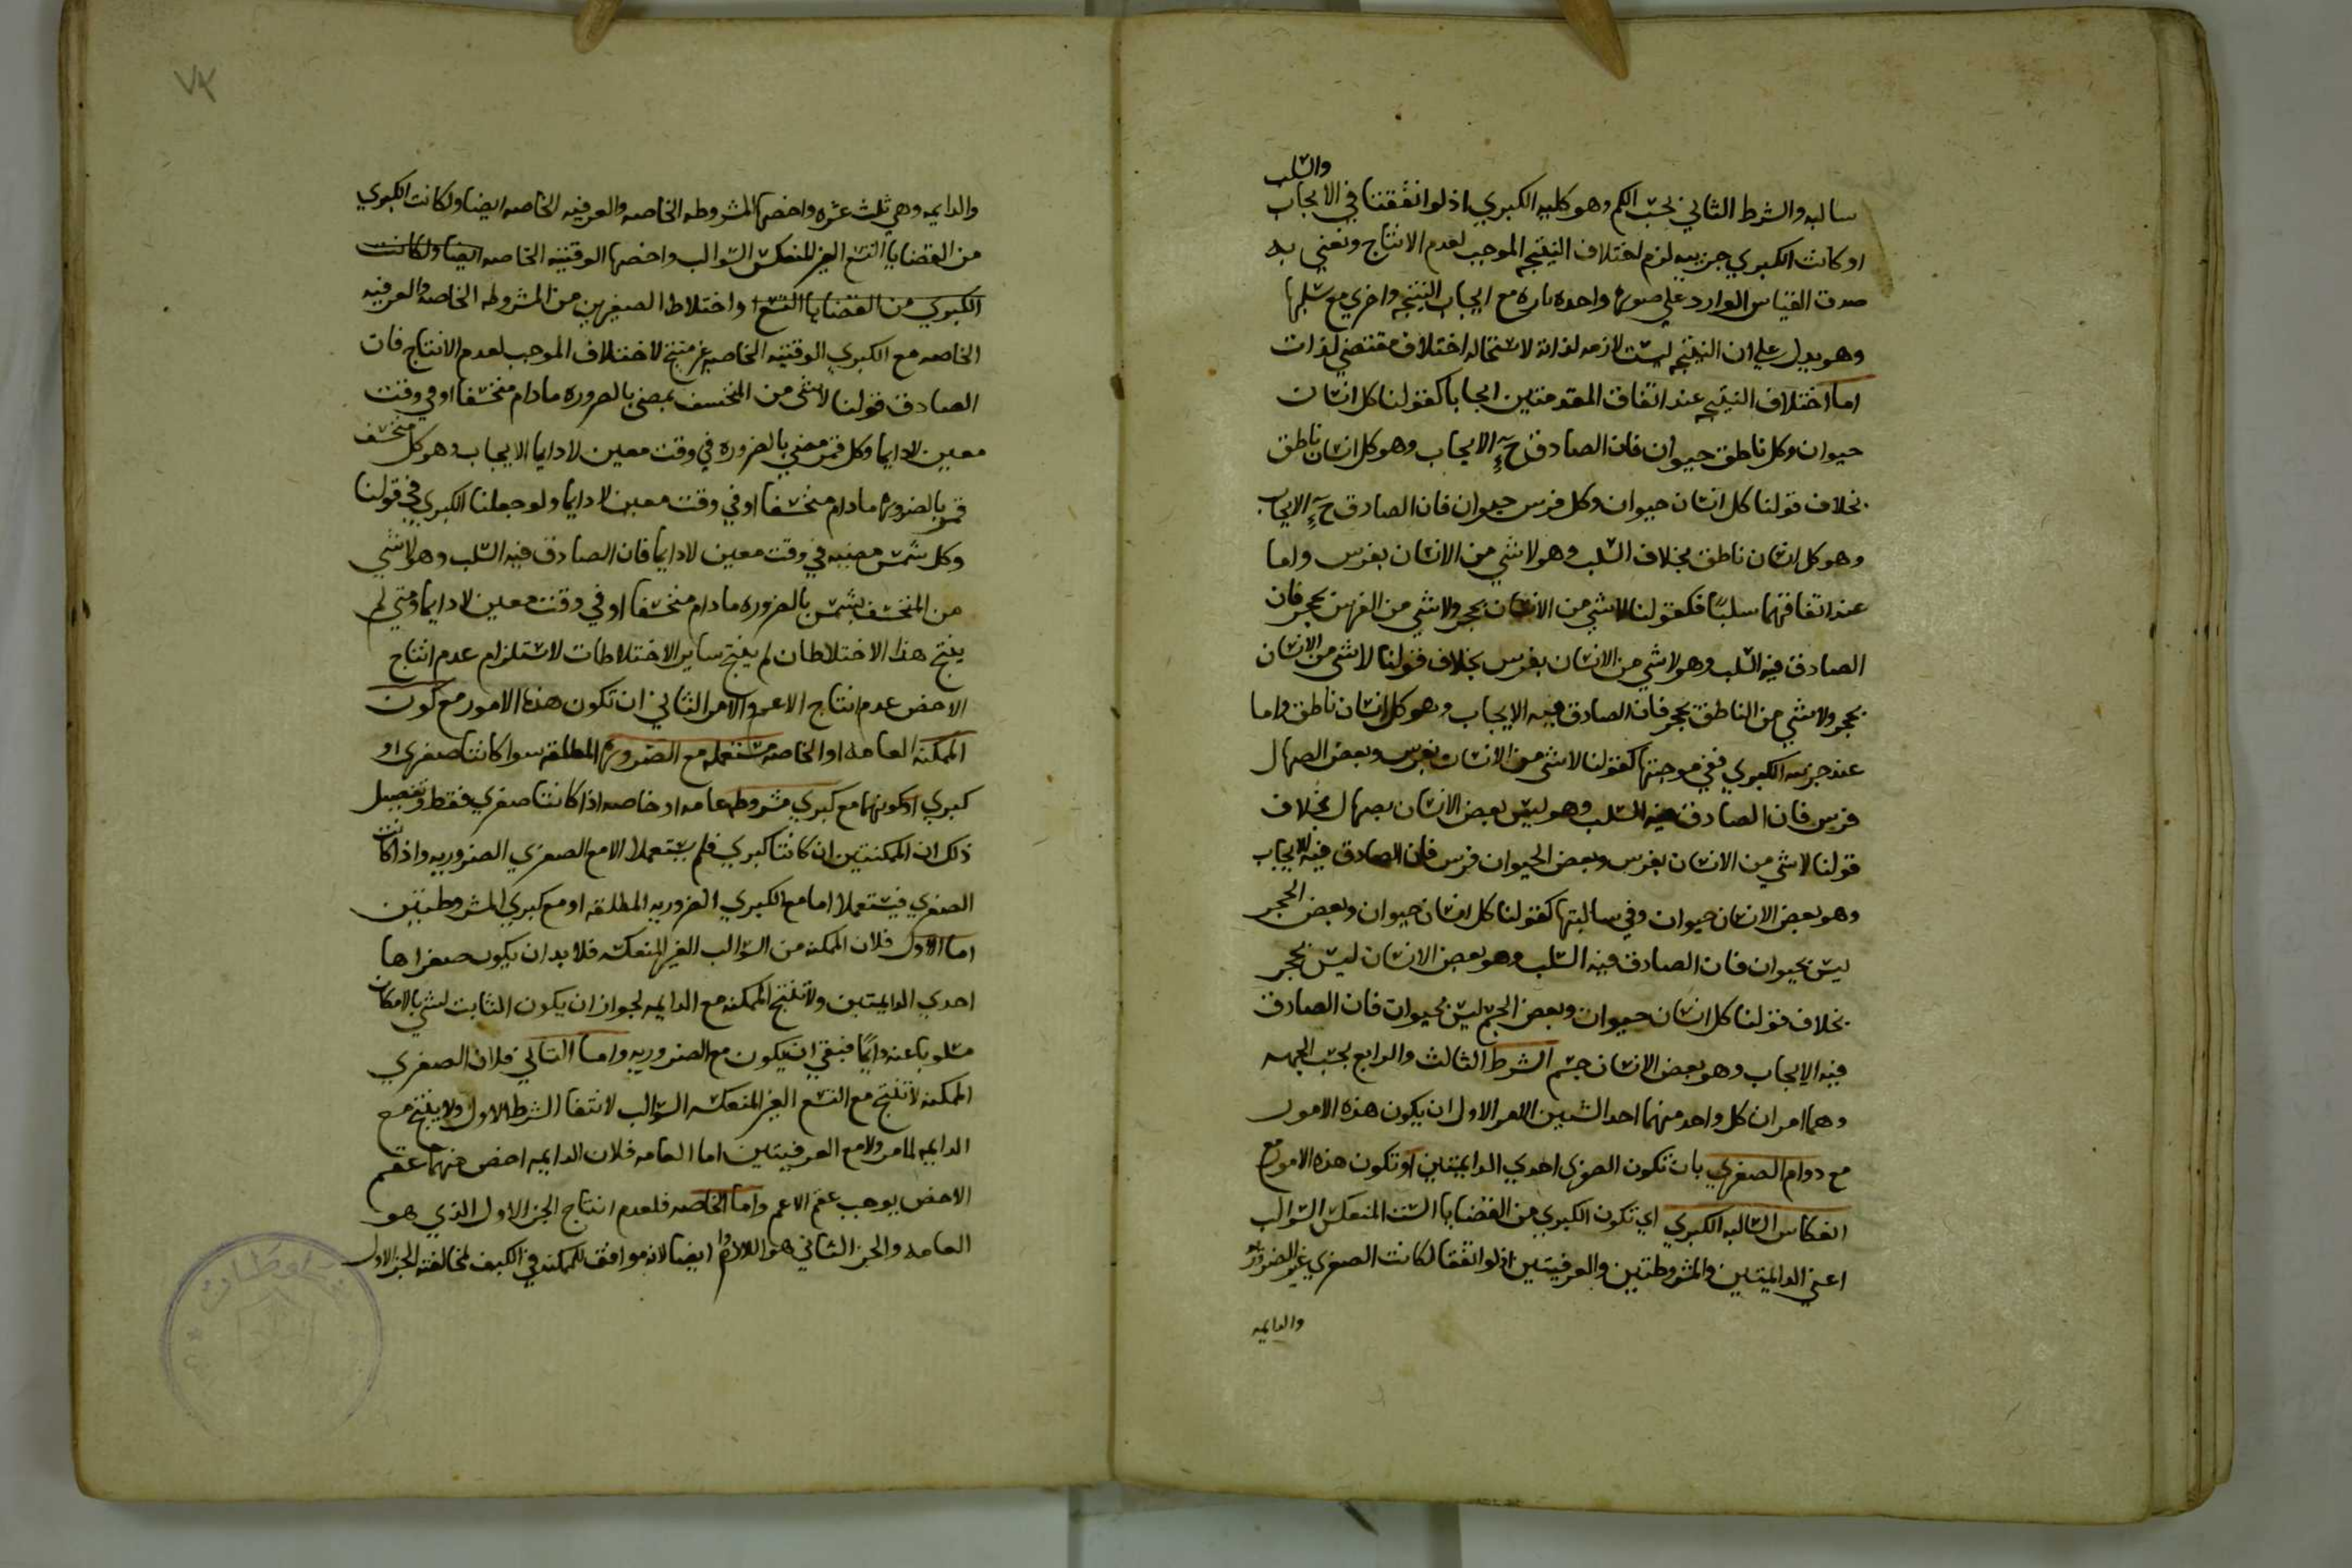 سالبه والشرط الثاني بحسب الكم وهو كليه الكبري اذ لو اتفقتا في الايجاب والسلب
او كانت الكبري جزييه لزم اختلاف النتيجه الموجب لعدم الانتاج ونعني به
صدق القياس الوارد علي صورة واحده تاره مع ايجاب النتيجه واخري مع سلبها
وهو يدل علي ان النتيجه ليست لازمه لذاته لاستحاله اختلاف مقتضي لذات
اما اختلاف النتيجه عند اتفاق المقدمتين ايجابا كقولنا كل انسان
حيوان وكل ناطق حيوان فان الصادق ح الايجاب وهو كل انسان ناطق
بخلاف قولنا كل انسان حيوان وكل فرس حيوان فان الصادق ح الايجاب
وهو كل انسان ناطق بخلاف السلب وهو لا شي من الانسان بفرس واما
عند اتفاقهما سلبًا فكقولنا لا شي من الانسان بحجر ولا شي من الفرس بحجر فان
الصادق فيه السلب وهو لا شي من الانسان بفرس بخلاف قولنا لا شي من الانسان
بحجر ولا شي من الناطق بحجر فان الصادق فيه الايجاب وهو كل انسان ناطق واما
عند جزييه الكبري ففي موجبتها كقولنا لا شي من الانسان بفرس وبعض الصهال
فرس فان الصادق فيه السلب وهو ليس بعض الانسان بصهال بخلاف
قولنا لا شي من الانسان بفرس وبعض الحيوان فرس فان الصادق فيه الايجاب
وهو بعض الانسان حيوان وفي سالبتها كقولنا كل انسان حيوان وبعض الحجر
ليس بحيوان فان الصادق فيه السلب وهو بعض الانسان ليس بحجر
بخلاف قولنا كل انسان حيوان وبعض الجسم ليس بحيوان فان الصادق
فيه الايجاب وهو بعض الانسان جسم الشرط الثالث والرابع بحسب الجهه
وهما امران كل واحد منهما احد الشيين الامر الاول ان يكون هذه الامور
مع دوام الصغري بان تكون الصغري احدي الدايمتين او تكون هذه الامور مع
انعكاس السالبه الكبري اي تكون الكبري من القضايا الست المنعكس السوالب
اعني الدايمتين والمشروطتين والعرفيتين اذ لو اتفقا لكانت الصغري غير الضروريه
والدايمه
والدايمه وهي ثلث عشره واخصها المشروطه الخاصه والعرفيه الخاصه ايضا ولكانت الكبري
من القضايا التسع الغير المنعكس السوالب واخصها الوقتيه الخاصه ايضا ولكانت
الكبري من القضايا التسع واختلاط الصغريين من المشروطه الخاصه والعرفيه
الخاصه مع الكبري الوقتيه الخاصه غير منتج لاختلاف الموجب لعدم الانتاج فان
الصادق قولنا لا شي من المنخسف بمضي بالضروره ما دام منخسفا او في وقت
معين لا دايما وكل قمر مضي بالضروره في وقت معين لا دايما الايجاب وهو كل منخسف
قمر بالضروره ما دام منخسفا او في وقت معين لا دايما ولو جعلنا الكبري في قولنا
وكل شمس مضيه في وقت معين لا دايما فان الصادق فيه السلب وهو لا شي
من المنخسف بشمس بالضروره ما دام منخسفا او في وقت معين لا دايما ومتي لم
ينتج هذا الاختلاطان لم ينتج ساير الاختلاطات لاستلزام عدم انتاج
الاخص عدم انتاج الاعم والامر الثاني ان تكون هذه الامور مع كون
الممكنه العامه او الخاصه مستعمله مع الضروريه المطلقه سوا كانتا صغري او
كبري او كونهما مع كبري مشروطه عامه او خاصه اذا كانتا صغري فقط وتفصيل
ذلك ان الممكنتين ان كانتا كبري فلم يستعملا الا مع الصغري الضروريه واذا كانت
الصغري فيستعملا اما مع الكبري الضروريه المطلقه او مع كبري المشروطتين
اما الاول فلان الممكنه من السوالب الغير المنعكسه فلا بد ان يكون صغراها
احدي الدايمتين ولا تنتج الممكنه مع الدايمه لجواز ان يكون الثابت لشي بالامكان
مسلوبا عنه دايمًا فبقي ان يكون مع الضروريه واما الثاني فلان الصغري
الممكنه لا تنتج مع التسع الغير المنعكسه السوالب لانتفا الشرط الاول ولا ينتج مع
الدايمه لما مر ولا مع العرفيتين اما العامه فلان الدايمه اخص منهما وعقم
الاخص يوجب عقم الاعم واما الخاصه فلعدم انتاج الجز الاول الذي هو
العامه والجز الثاني هو اللادوام ايضا لانه موافق للممكنه في الكيف لمخالفته الجز الاول